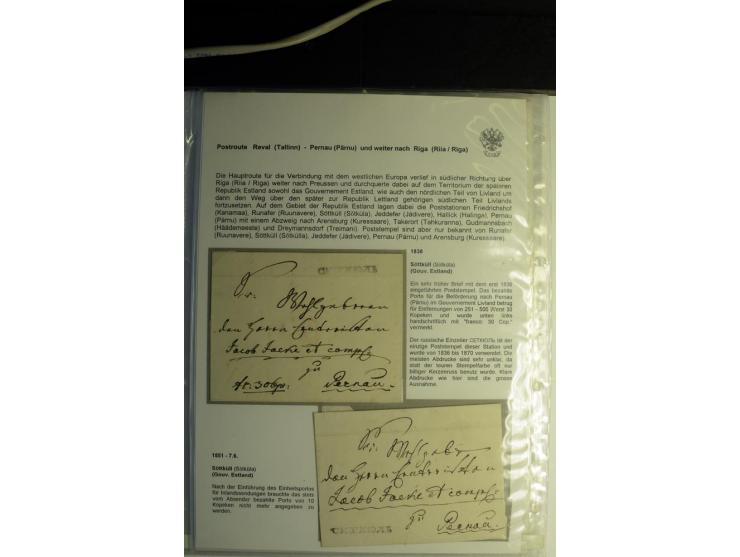 Postroute Reval (Tallinn) - Pernau (Pärnu) und weiter nach Riga (Riia / Riga)
Die Hauptroute für die Verbindung mit dem westlichen Europa verlief in südlicher Richtung über
Riga (Riia / Riga) weiter nach Preussen und durchquerte dabei auf dem Territorium der späteren
Republik Estland sowohl das Gouvernement Estland, wie auch den nördlichen Teil von Livland um
dann den Weg über den später zur Republik Lettland gehörigen südlichen Teil Livlands
fortzusetzen. Auf dem Gebiet der Republik Estland lagen dabei die Poststationen Friedrichshof
(Kanamaa), Runafer (Ruunavere), Söttküll (Sötkülla), Jeddefer (Jädivere), Hallick (Halinga), Pernau
(Pärnu) mit einem Abzweig nach Arensburg (Kuressaare), Takerort (Tahkuranna), Gudmannsbach
(Häädemeeste) und Dreymannsdorf (Treimani). Poststempel sind aber nur bekannt von Runafer
(Ruunavere), Söttküll (Sötkülla), Jeddefer (Jädivere), Pernau (Pärnu) und Arensburg (Kuressaare).
1836
Söttküll (Sötküla)
(Gouv. Estland)
Ein sehr früher Brief mit dem erst 1836
eingeführten Poststempel. Das bezahlte
Porto für die Beförderung nach Pernau
(Pärnu) im Gouvernement Livland betrug
für Entfernungen von 251 - 500 Werst 30
Kopeken und wurde unten links
handschriftlich mit "franco 30 Cop."
vermerkt.
Der russische Einzeiler СЕТКЮЛЬ ist der
einzige Poststempel dieser Station und
wurde von 1836 bis 1870 verwendet. Die
meisten Abdrucke sind sehr unklar, da
statt der teuren Stempelfarbe oft nur
billiger Kerzenruss benutz wurde. Klare
Abdrucke wie hier sind die grosse
Ausnahme.
СИТКЮЛЬ
Wohlgeboren
den Herrn
Jacob Jacke et comp
zu
fr. 30 Cop. Pernau.
1851 - 7.6.
Söttküll (Sötküla)
(Gouv. Estland)
Nach der Einführung des Einheitsportos
für Inlandssendungen brauchte das stets
vom Absender bezahlte Porto von 10
Kopeken nicht mehr angegeben zu
werden.
den Herrn
Jacob Jacke et comp
zu
СИТКЮЛЬ Pernau.